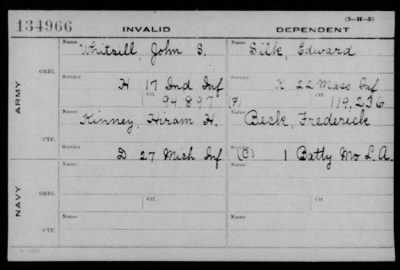 134966
INVALID DEPENDENT
(3-H-5)
Name Whitsill, John S. Name Silk, Edward
ARMY
ORIG.
Service H 17 Ind Inf Service K 22 Mass Inf
Ctf. 94,897 (F) Ctf. 119,236
CTF.
Name Kinney, Hiram H. Name Beck, Frederick
Service D 27 Mich Inf Service (C) 1 Batty Mo L. A.
NAVY
ORIG.
Name Name
Ctf. Ctf.
CTF.
Name Name